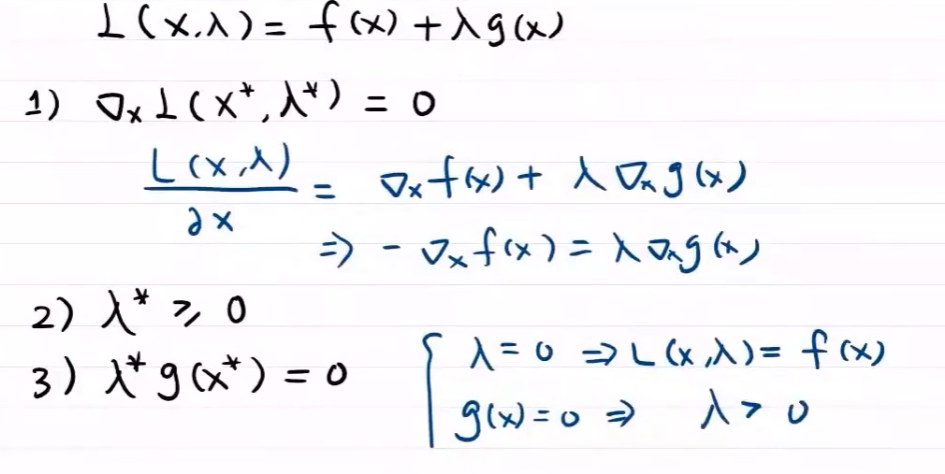 L(x,λ) = f(x) + λg(x)
1) ∇x L(x*, λ*) = 0
L(x,λ) / ∂x = ∇x f(x) + λ ∇x g(x)
⇒ - ∇x f(x) = λ ∇x g(x)
2) λ* ≥ 0
3) λ* g(x*) = 0
{ λ = 0 ⇒ L(x,λ) = f(x)
g(x) = 0 ⇒ λ > 0